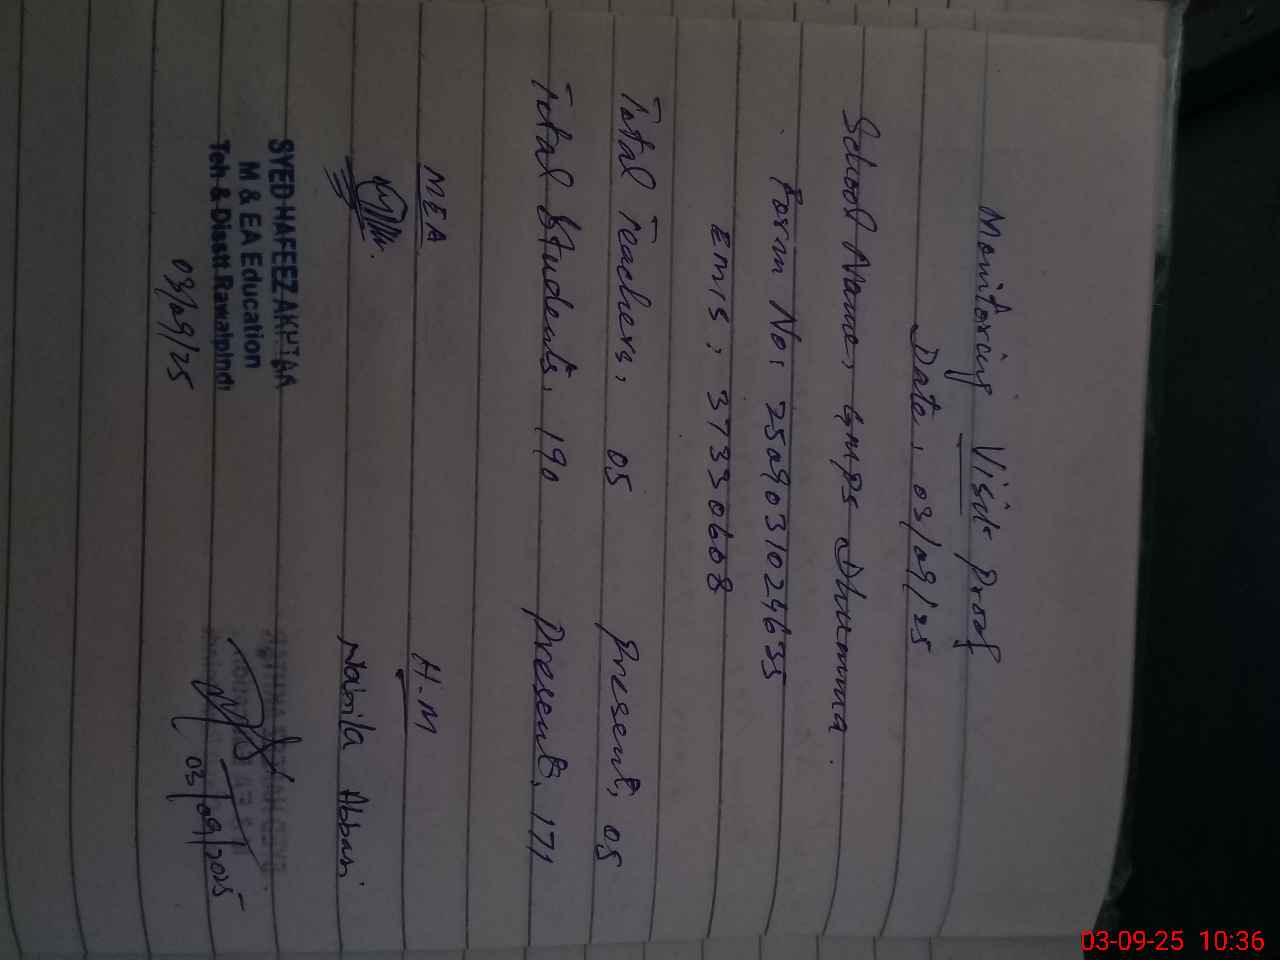 Monitoring Visit Proof
Date, 03/09/25
School Name, GMPS Dhumma.
Form No: 2509031024635
Emis, 37330608
Total Teachers, 05 Present, 05
Total Students, 190 Present, 171
MEA H.M
Nabila Abbasi
SYED HAFEEZ AKHTAR
M & EA Education
Teh & Distt Rawalpindi
03/09/25 03/09/2025
03-09-25 10:36